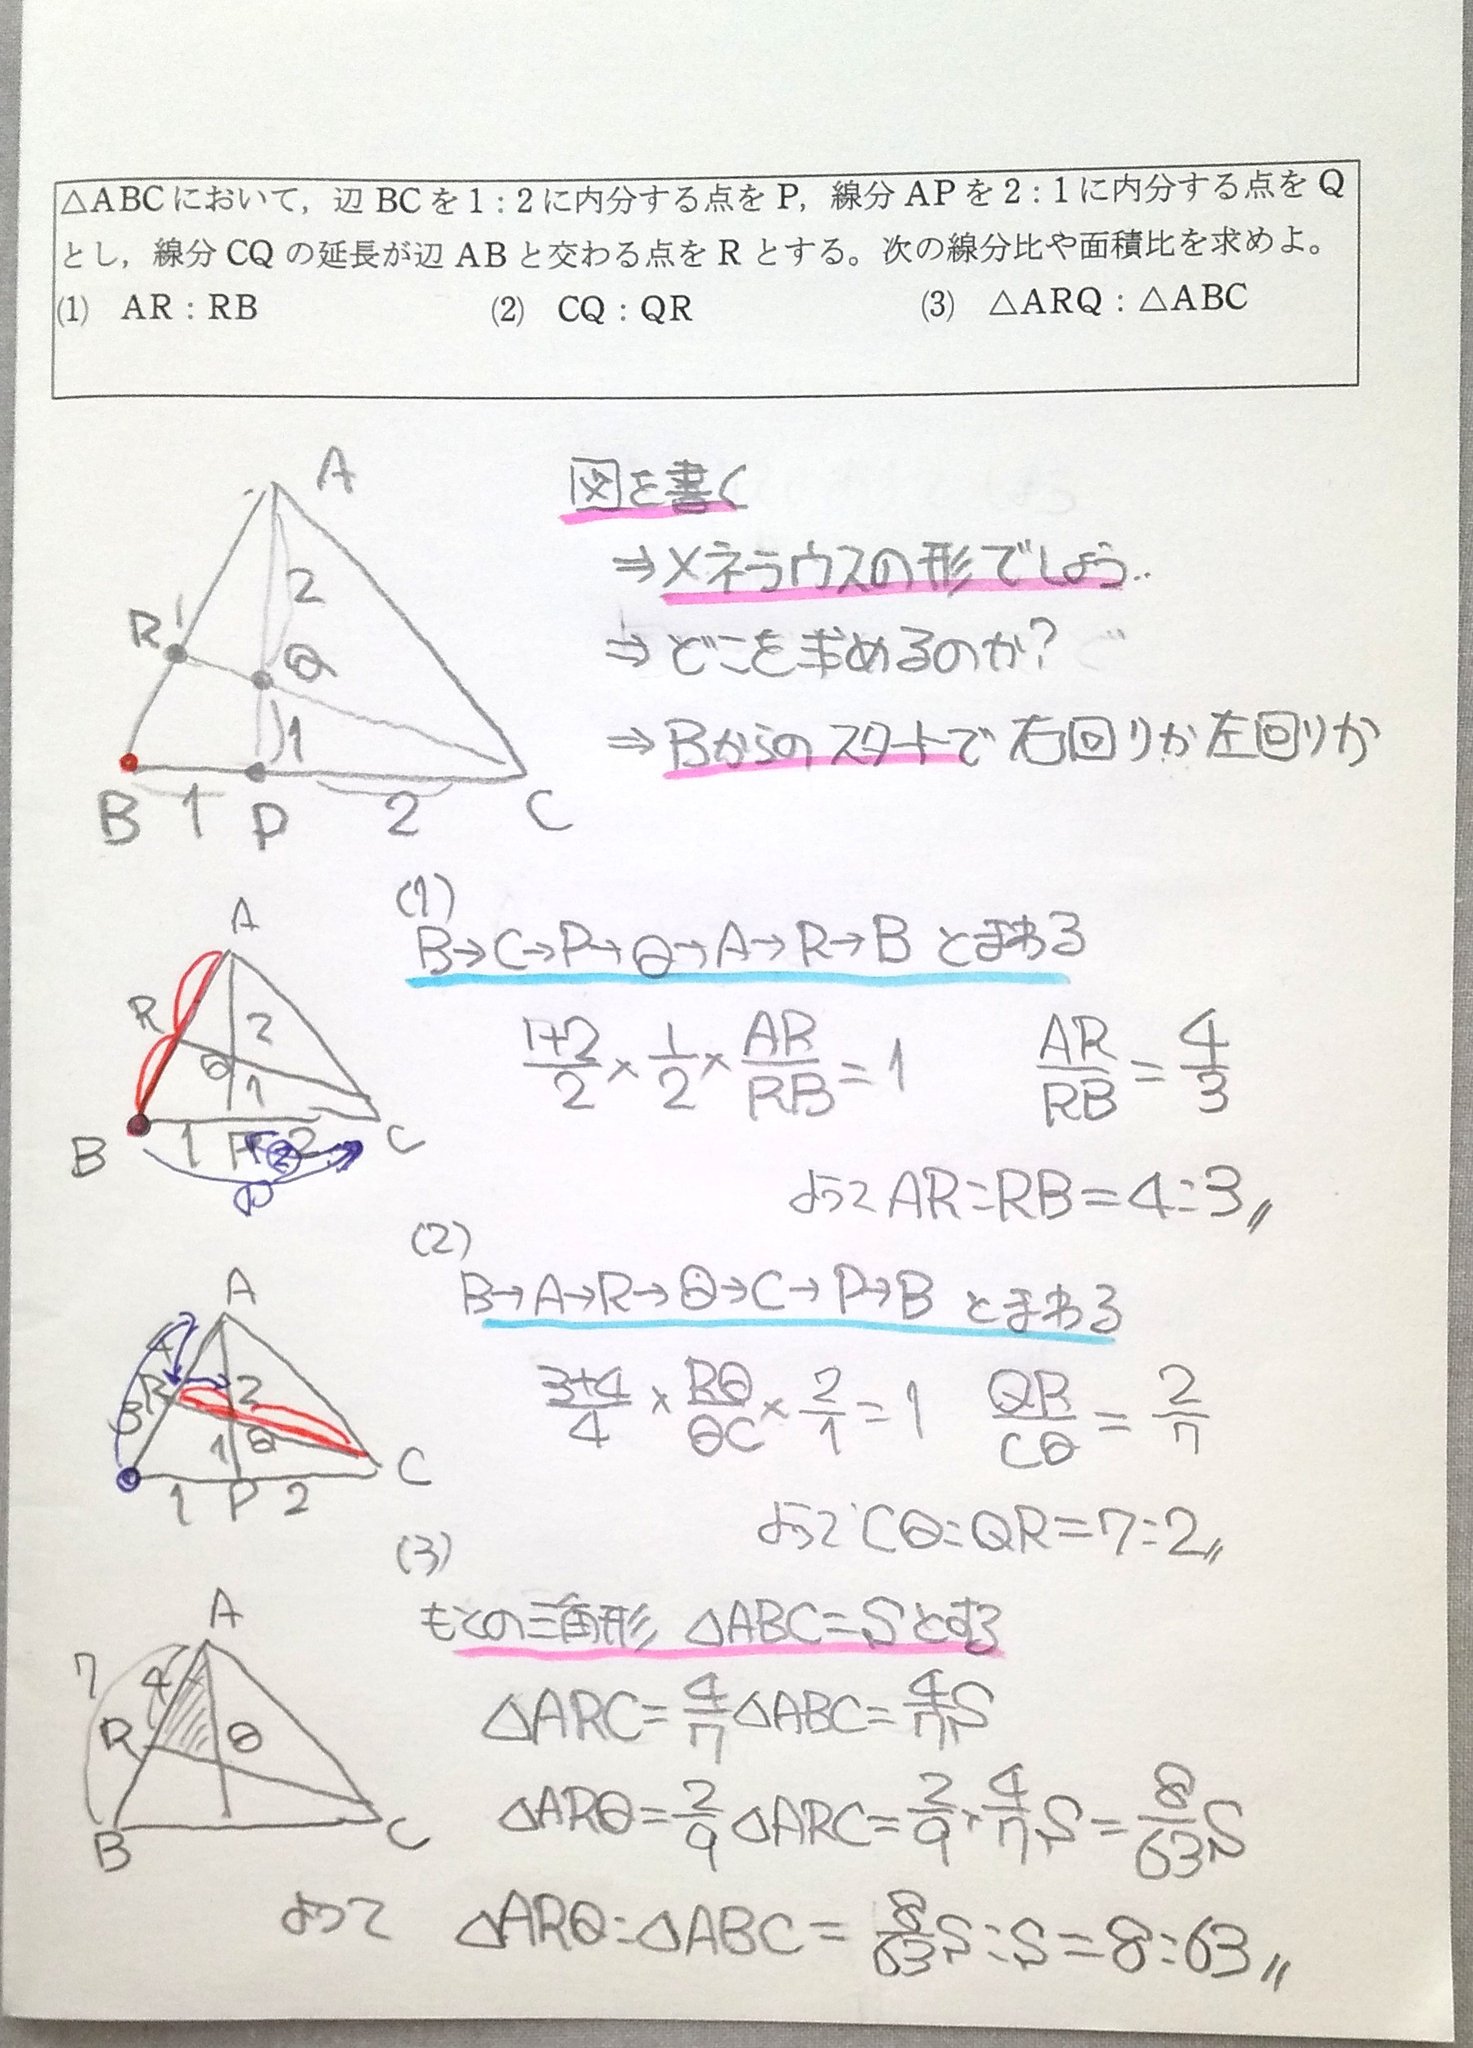 △ABCにおいて，辺BCを1：2に内分する点をP，線分APを2：1に内分する点をQ
とし，線分CQの延長が辺ABと交わる点をRとする。次の線分比や面積比を求めよ。
(1) AR：RB (2) CQ：QR (3) △ARQ：△ABC
A
図を書く
2
⇒メネラウスの形でしょう..
R
Q
⇒どこを求めるのか?
1
⇒Bからのスタートで右回りか左回りか
B 1 P 2 C
(1)
A
B→C→P→Q→A→R→B とまわる
R 2
Q 1
1+2/2 × 1/2 × AR/RB = 1 AR/RB = 4/3
B 1 P 2 C
②
①
よって AR:RB=4:3〃
(2)
A
B→A→R→Q→C→P→B とまわる
4
R 2
3
1 Q
3+4/4 × RQ/QC × 2/1 = 1 QR/CQ = 2/7
C
1 P 2
よって CQ:QR=7:2〃
(3)
A
もとの三角形 △ABC=Sとする
7 4
△ARC=4/7△ABC=4/7S
R Q
△ARQ=2/9△ARC=2/9×4/7S=8/63S
B C
よって △ARQ:△ABC=8/63S:S=8:63〃